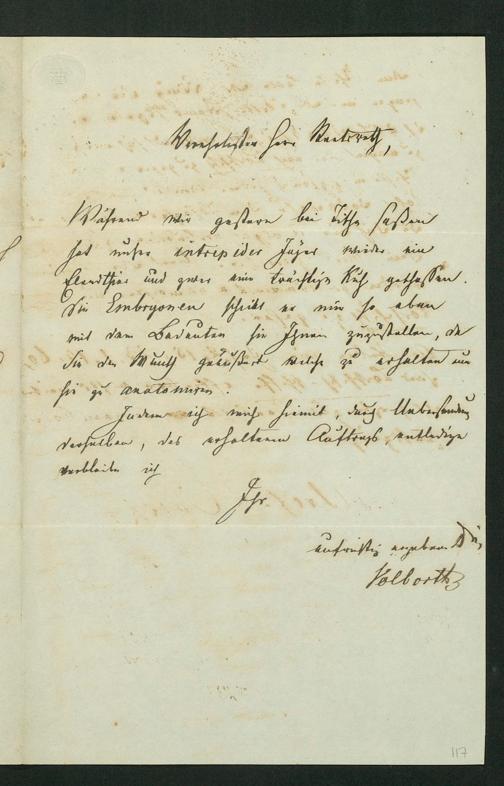 Verehrtester Herr Staatsrath,
Während wir gestern bei Tische saßen
hat unser intrepider Jäger wieder ein
Elendthier und zwar eine trächtige Kuh geschossen.
Die Embryonen schickt er mir so eben
mit dem Bedeuten sie Ihnen zuzustellen, da
Sie den Wunsch geäußert welche zu erhalten um
sie zu anatomiren.
Indem ich mich hiemit, durch Uebersendung
derselben, des erhaltenen Auftrags, entledige
verbleibe ich
Ihr
aufrichtig ergebener
Volborth
117